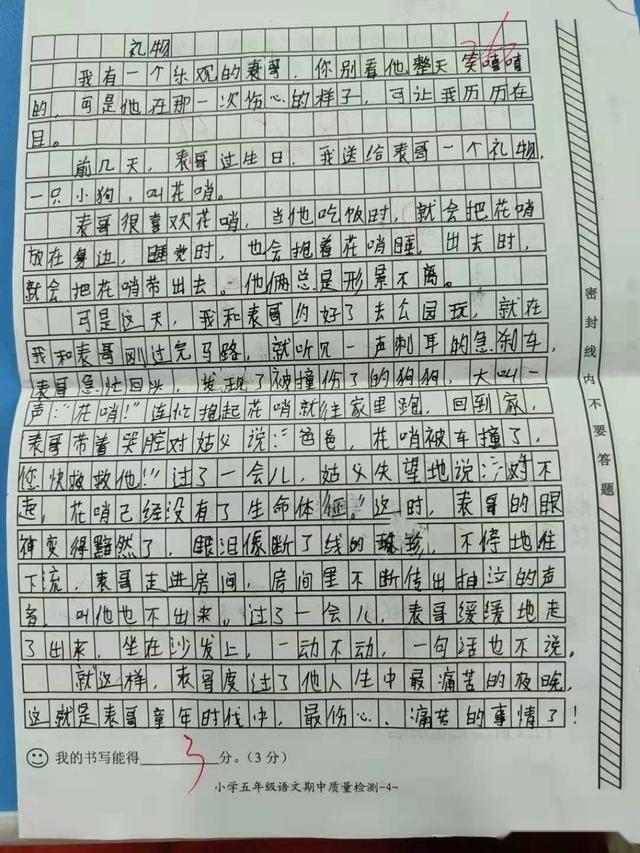 礼物
26
我有一个乐观的表哥，你别看他整天笑嘻嘻
的，可是他在那一次伤心的样子，可让我历历在
目。
前几天，表哥过生日，我送给表哥一个礼物，
一只小狗，叫花哨。
表哥很喜欢花哨，当他吃饭时，就会把花哨
放在身边，睡觉时，也会抱着花哨睡，出去时，
就会把花哨带出去。他俩总是形景不离。
可是这天，我和表哥约好了去公园玩，就在
我和表哥刚过完马路，就听见一声刺耳的急刹车，
表哥急忙回头，发现了被撞伤了的狗狗，大叫一
声：“花哨！”连忙抱起花哨就往家里跑，回到家，
表哥带着哭腔对姑父说：“爸爸，花哨被车撞了，
您快救救他！”过了一会儿，姑父失望地说：“对不
起，花哨已经没有了生命体征。”这时，表哥的眼
神变得黯然了，眼泪像断了线的珠珍，不停地住
下流，表哥走进房间，房间里不断传出抽泣的声
音，叫他也不出来。过了一会儿，表哥缓缓地走
了出来，坐在沙发上，一动不动，一句话也不说。
就这样，表哥度过了他人生中最痛苦的夜晚，
这就是表哥童年时代中，最伤心、痛苦的事情了！
我的书写能得3分。（3分）
小学五年级语文期中质量检测-4-
密封线内不要答题